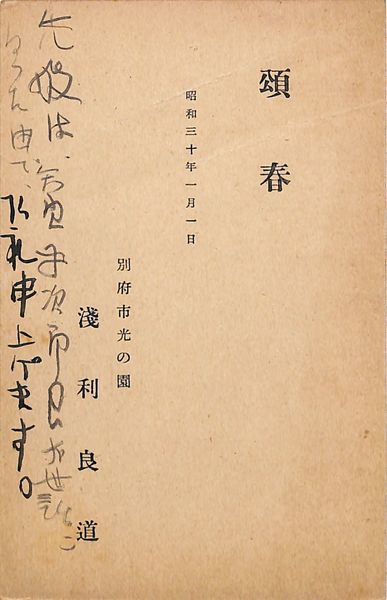 頌春
昭和三十年一月一日
別府市光の園
淺利良道
先般は 次郎 お世話に
申し 御礼申上げます。